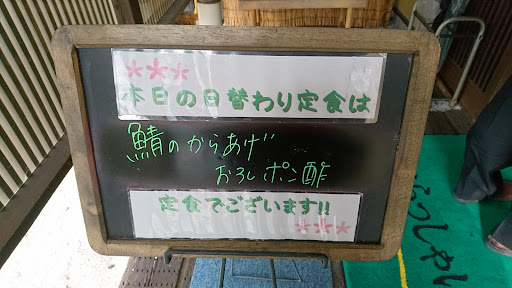 本日の日替わり定食は
鯖のからあげ
おろしポン酢
定食でございます!!